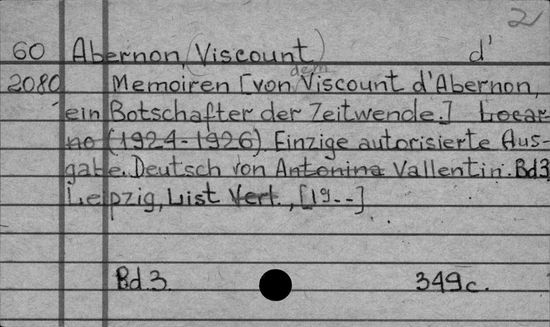 2
60 Abernon, (Viscount) d'
2080 Memoiren [von dem Viscount d'Abernon,
ein Botschafter der Zeitwende.] Locar-
no (1924-1926). Einzige autorisierte Aus-
gabe. Deutsch von Antonina Vallentin. Bd3
Leipzig, List Verl., [19--]
Bd.3. 349c.